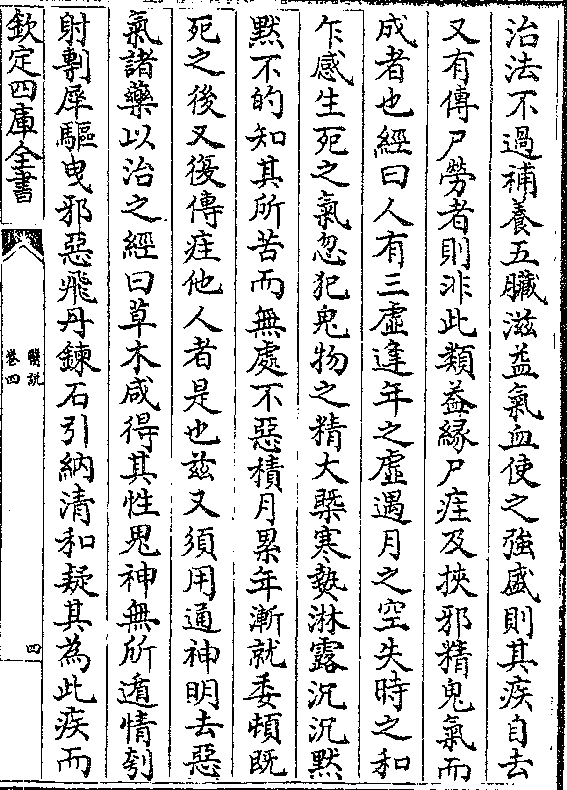 治法不過補養五臟滋益氣血使之強盛則其疾自去
又有傳尸勞者則非此類葢緣尸疰及挾邪精鬼氣而
成者也經曰人有三虛逢年之虛遇月之空失時之和
乍感生死之氣忽犯鬼物之精大槩寒熱淋露沉沉黙
黙不的知其所苦而無處不惡積月累年漸就委頓既
死之後又復傳疰他人者是也兹又須用通神明去惡
氣諸藥以治之經曰草木咸得其性鬼神無所遁情刳
射剸犀驅曳邪惡飛丹鍊石引納清和疑其為此疾而
欽定四庫全書
醫說
卷四
四